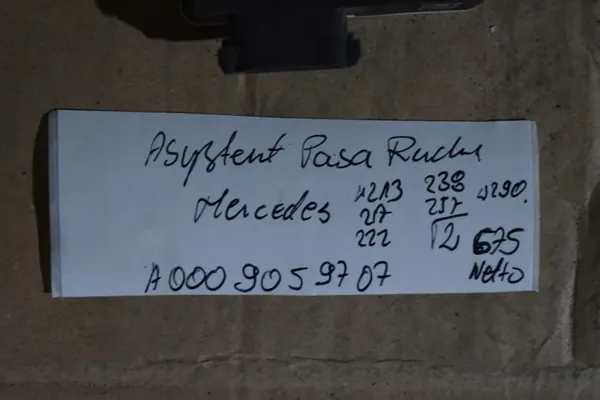 Asystent Pasa Ruchu
Mercedes w213 238 w290.
217 257
222 675
A000 905 97 07 Netto